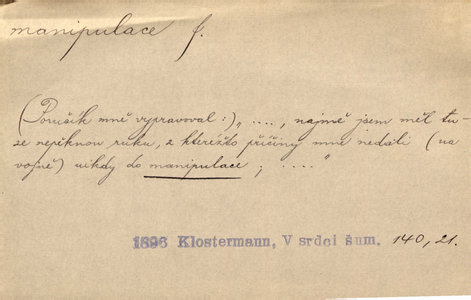 manipulace f.
(Poručík mně vypravoval:) „ ...., najmě jsem měl tu-
ze nepěknou ruku, z kteréžto příčiny mne nedali (na
vojně) nikdy do manipulace; ...."
1896 Klostermann, V srdci šum. 140, 21.